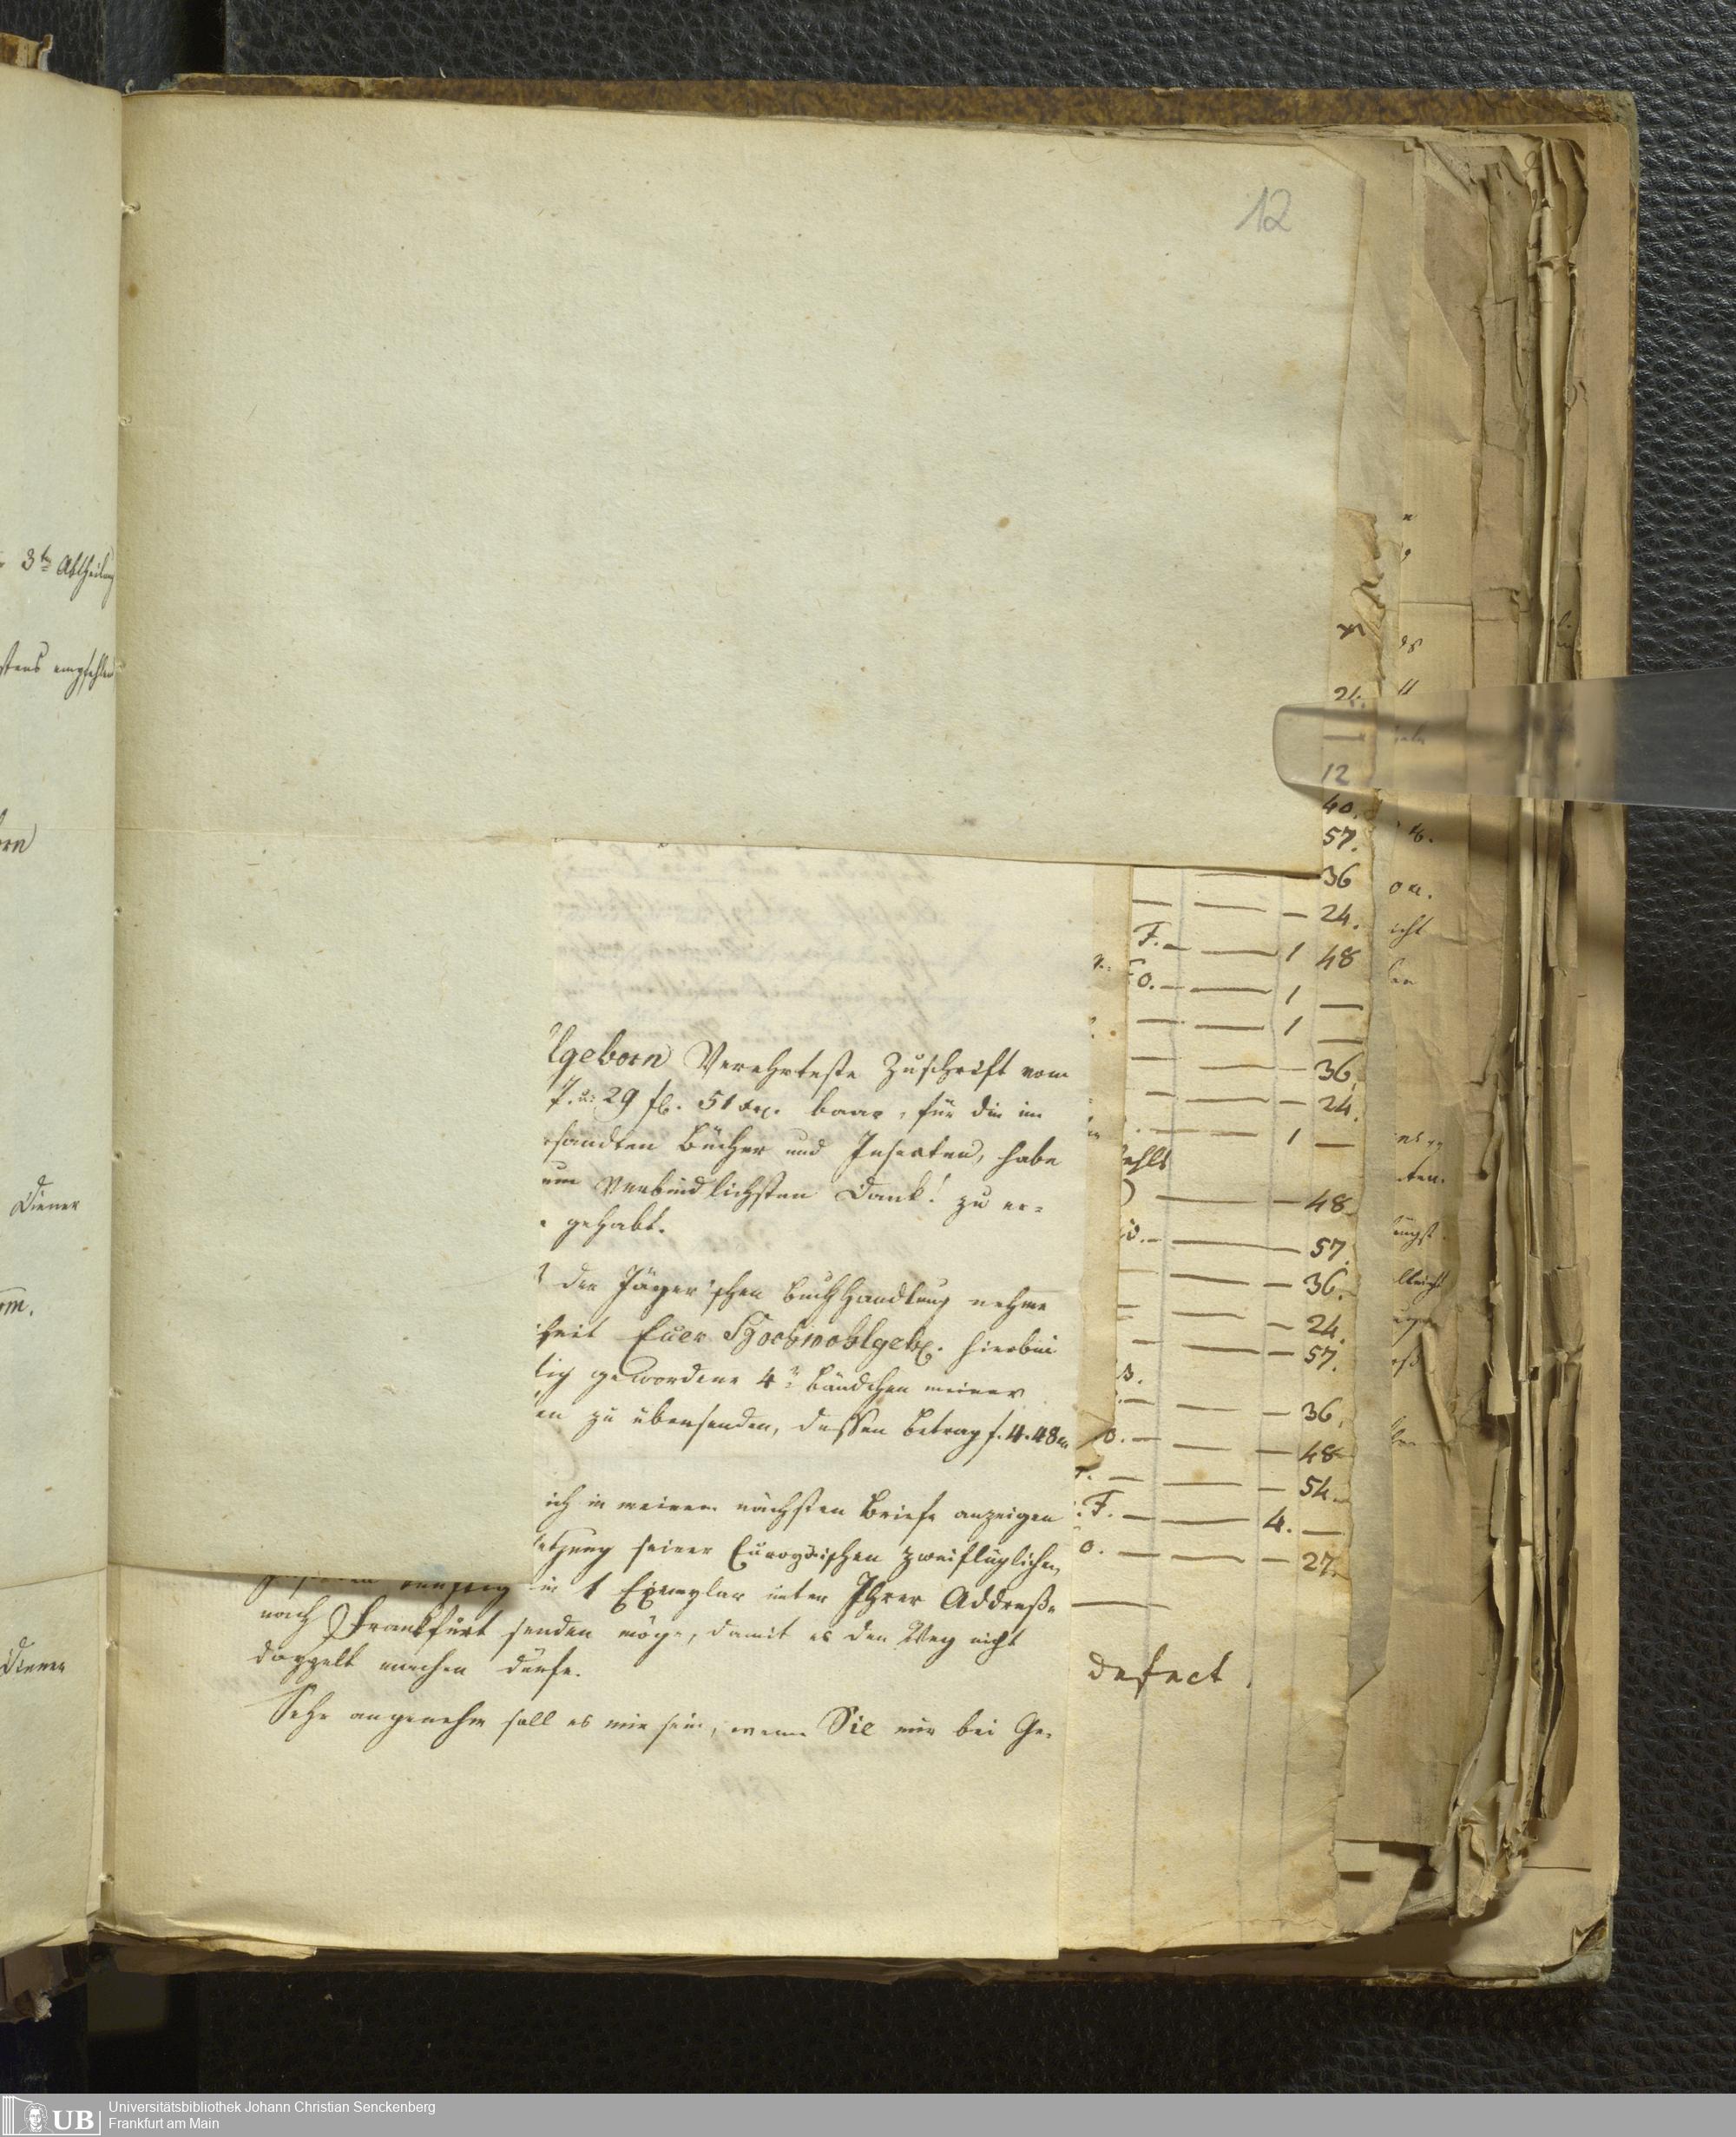 12
3te Abtheilung
stens empfehlen
Diener
Diener
lgeborn Verehrteste Zuschrift vom
7. u: 29 fl. 51 xr. baar, für die im
sandten Bücher und Insecten, habe
um Verbindlichsten Dank! zu er=
gehabt.
der Jäger'schen Buchhandlung nehme
heit Euer Hochwohlgeb. hierbei
tig gewordene 4te Bändchen meiner
en zu übersenden, dessen Betrag f. 4.48 xr
ich in meinem nächsten Briefe anzeigen
setzung seiner Europäischen zweiflüglichen
in 1 Exemplar unter Ihrer Addresse
nach Frankfurt senden möge, damit es den Weg nicht
doppelt machen dürfe.
Sehr angenehm soll es mir sein, wenn Sie mir bei Ge=
xr
24.
—
12
40.
57.
36
— — — 24.
F. — — 1 48
o. — — 1 —
— — 1 —
— — — 36.
— — — 24.
— — 1 —
ehlt
— — 48.
o. — — 57.
— — — 36.
— — — 24.
— — — 57.
B.
— — — 36.
o. — — — 48
— — — 54.
F. — — 4. —
o. — — — 27.
defect.
UB
Universitätsbibliothek Johann Christian Senckenberg
Frankfurt am Main